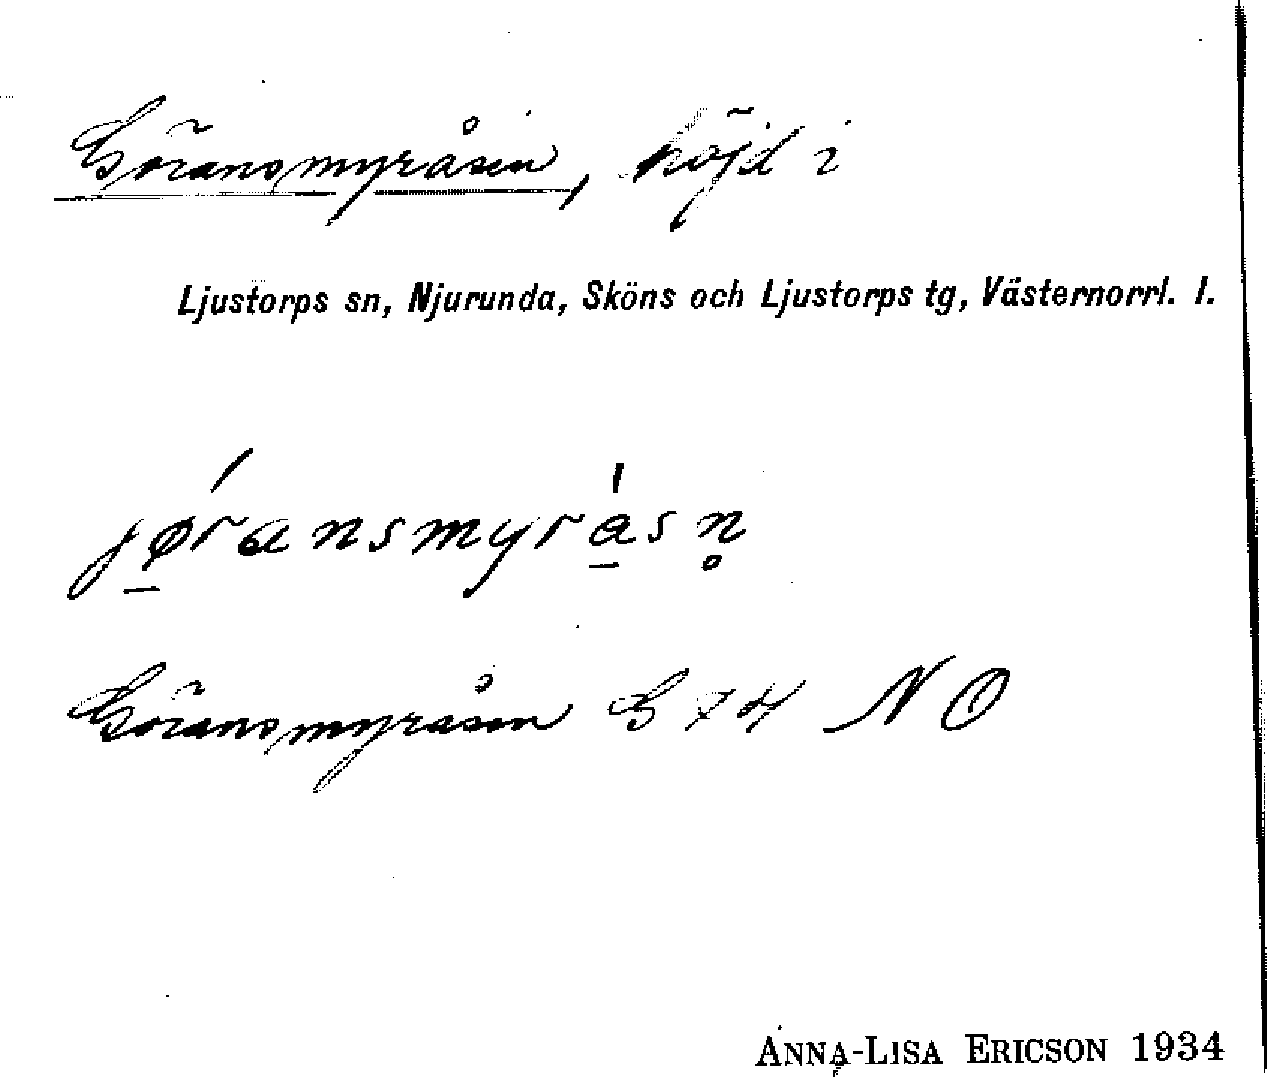 Göransmyråsen, höjd i
Ljustorps sn, Njurunda, Sköns och Ljustorps tg, Västernorrl. l.
jǿ̱ransmyrá̱sn̥
Göransmyråsen G 74 NO
ANNA-LISA ERICSON 1934